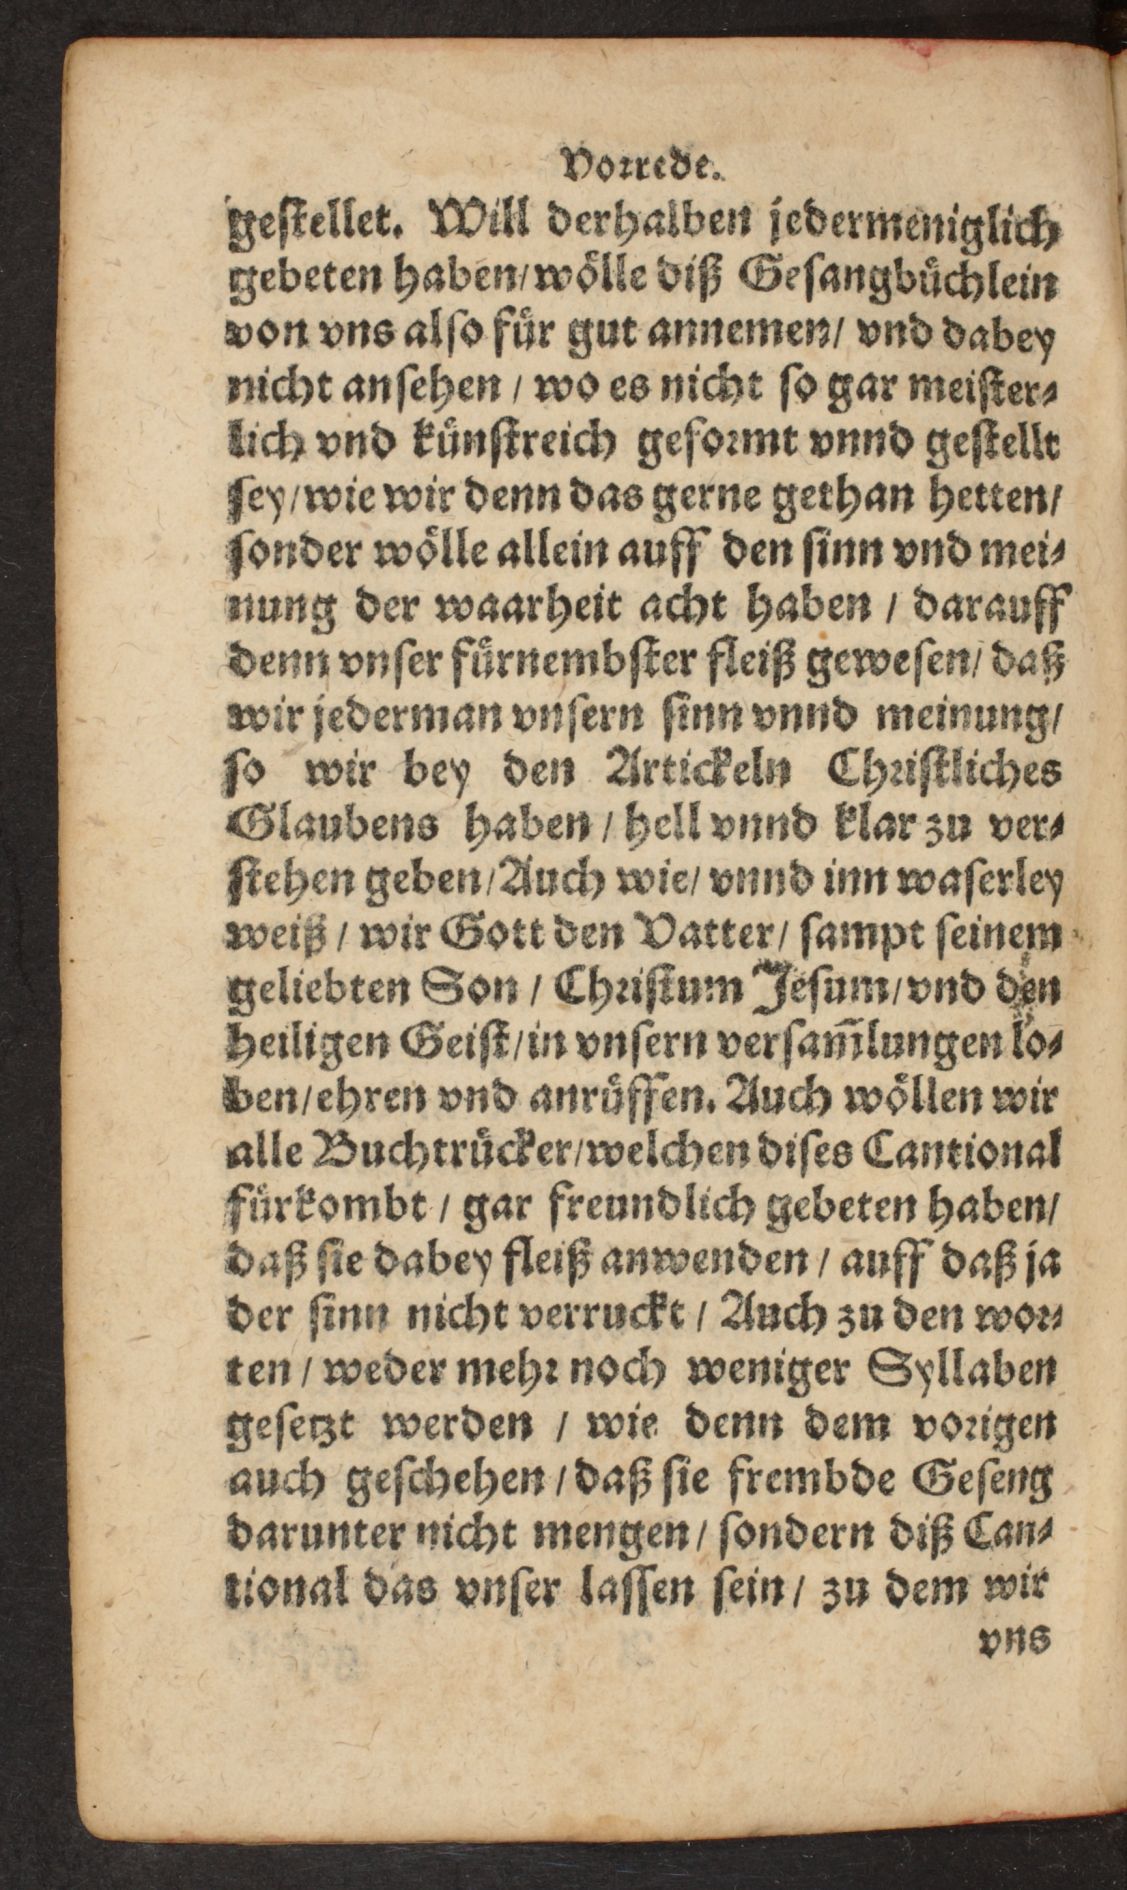 Vorrede.
gestellet. Will derhalben jedermeniglich
gebeten haben/ wölle diß Gesangbüchlein
von vns also für gut annemen/ vnd dabey
nicht ansehen / wo es nicht so gar meister⸗
lich vnd künstreich geformt vnnd gestellt
sey/ wie wir denn das gerne gethan hetten/
sonder wölle allein auff den sinn vnd mei⸗
nung der waarheit acht haben / darauff
denn vnser fürnembster fleiß gewesen/ daß
wir jederman vnsern sinn vnnd meinung/
so wir bey den Artickeln Christliches
Glaubens haben / hell vnnd klar zu ver⸗
stehen geben/ Auch wie/ vnnd inn waserley
weiß / wir Gott den Vatter/ sampt seinem
geliebten Son / Christum Jesum/ vnd den
heiligen Geist/ in vnsern versam̃lungen lo⸗
ben/ ehren vnd anrüffen. Auch wöllen wir
alle Buchtrücker/ welchen dises Cantional
fürkombt / gar freundlich gebeten haben/
daß sie dabey fleiß anwenden / auff daß ja
der sinn nicht verruckt / Auch zu den wor⸗
ten / weder mehr noch weniger Syllaben
gesetzt werden / wie denn dem vorigen
auch geschehen / daß sie frembde Geseng
darunter nicht mengen/ sondern diß Can⸗
tional das vnser lassen sein / zu dem wir
vns